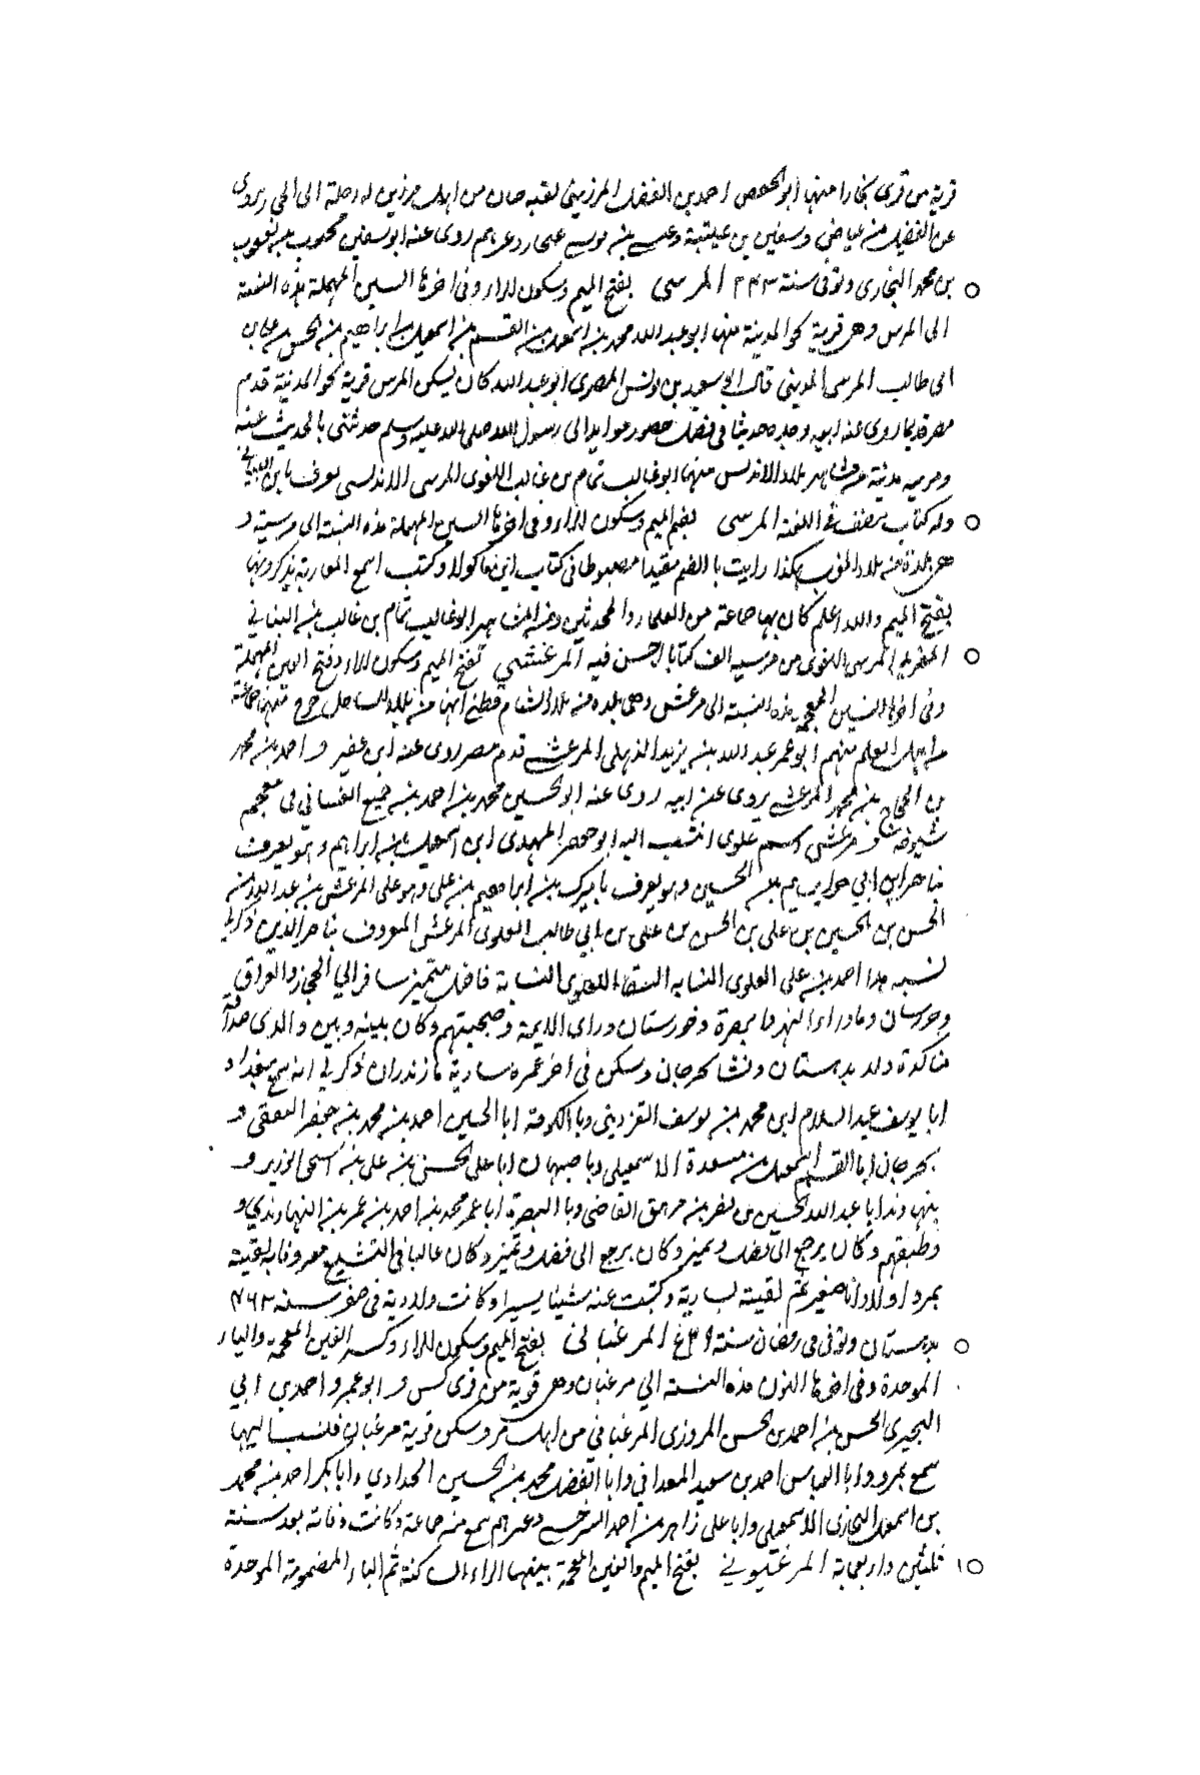 قرية من قرى بخارا منها ابو الحفص احمد بن الفضل المرزيني لقبه حان من اهل مرزين له رحلة الى الحي روى
عن الفضيل بن عياض وسفين بن عيينة وعيسى بن موسى غنجار وغيرهم روى عنه ابو سفين محبوب بن يعقوب
بن محمد البخارى وتوفى سنة ٢٤٣ المرسى بفتح الميم وسكون الراء وفى اخرها السين المهملة هذه النسبة
الى المرس وهى قرية نحو المدينة منها ابو عبد الله محمد بن اسمعيل بن القسم بن اسمعيل بن ابراهيم بن الحسن بن على بن
ابى طالب المرسى المدينى قال ابو سعيد بن يونس المصرى ابو عبد الله كان يسكن المرس قرية نحو المدينة قدم
مصر قديما روى عنه ابيه وجده حديثا فى فضل حضور موايد الى رسول الله صلى الله عليه وسلم حدثنى بالحديث عنه
ومرسيه مدينة من مشاهير بلاد الاندلس منها ابو غالب تمام بن غالب اللغوى المرسى الاندلسى يعرف بابن
وله كتاب مصنف فى اللغة المرسى بضم الميم وسكون الراء وفى اخرها السين المهملة هذه النسبة الى مرسية و
هى بلدة من بلاد المغرب هكذا رايت بالضم مقيدا مضبوطا فى كتاب ابن ماكولا وكنت اسمع المغاربة يذكرونها
بفتح الميم والله اعلم كان بها جماعة من العلماء والمحدثين ومن المشاهير ابو غالب تمام بن غالب بن البنانى
المغربى المرسى اللغوى من مرسيه الف كتابا احسن فيه المرعشى بفتح الميم وسكون الراء وفتح العين المهملة
وفى اخرها الشين المعجمة هذه النسبة الى مرعش وهى بلدة من بلاد الشام فظنى انها من بلاد الساحل خرج منها جماعة
من اهل العلم منهم ابو عمر عبد الله بن يزيد الذهلى المرعشى قدم مصر روى عنه ابن عفير و احمد بن محمد
بن الحجاج بن محمد المرعشى يروى عن ابيه روى عنه ابو الحسين محمد بن احمد بن جميع الغسانى فى معجم
شيوخه و مرعش اسم علوى انتسب اليه ابو جعفر المهدى ابن اسمعيل بن ابراهيم وهو يعرف
بناصر ابن ابى حرب بن الحسين وهو يعرف باميرك بن ابراهيم بن على وهو على المرعش بن عبد الله بن
الحسن بن الحسين بن على بن الحسن بن على بن ابى طالب العلوى المرعشى المعروف بناصر الدين ذكر لى
نسبه هذا احمد بن على العلوى النسابه السقا العلوى النسابة فاضل متميز سافر الى الحجاز والعراق
وخراسان وما وراء النهر وبصرة وخوزستان وراى الايمة وصحبتهم وكان بينه وبين والدى صداقة
متاكدة ولد بدهستان ونشا بجرجان وسكن فى اخر عمره سارية مازندران ذكر لى انه سمع ببغداد
ابا يوسف عبد السلام ابن محمد بن يوسف القزوينى وبالكوفة ابا الحسين احمد بن محمد بن جعفر الثقفى و
بجرجان ابا القسم اسمعيل بن مسعدة الاسمعيلى وباصبهان ابا على الحسن بن على بن اسحق الوزير و
بنهاوند ابا عبد الله الحسين بن نصر بن مرهق القاضى وبالبصرة ابا عمر محمد بن احمد بن عمر بن النهاوندى و
وطبقتهم وكان يرجع الى فضل وتميز وكان يرجع الى فضل وتميز وكان غاليا فى التشيع معروفا به لقيته
بمرو اولا وانا صغير ثم لقيته بسارية وكتبت عنه شيئا يسيرا وكانت ولادته فى صفر سنة ٤٦٣
بدهستان وتوفى فى رمضان سنة المرغبانى بفتح الميم وسكون الراء وكسر الغين المعجمة والباء
الموحدة وفى اخرها النون هذه النسبة الى مرغبان وهى قرية من قرى كس و ابو عمرو احمد بن ابى
البحيرى الحسن بن احمد بن الحسن المروزى المرغبانى من اهل مرو سكن قرية مرغبان فنسب اليها
سمع بمرو ابا العباس احمد بن سعيد المعدانى وابا الفضل محمد بن الحسين الحدادى وابا بكر احمد بن محمد
بن اسمعيل البخارى الاسمعيلى وابا على زاهر بن احمد السرخسى وغيرهم سمع منه جماعة وكانت وفاته بعد سنة
ثلثين واربعماية المرغبونى بفتح الميم والغين المعجمة بينهما الراء الساكنة ثم الباء المضمومة الموحدة